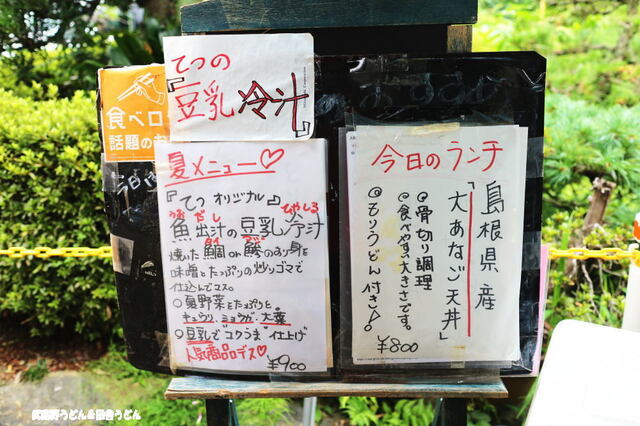 てつの
『豆乳冷汁』
食べロ
話題のお
今日
夏メニュー♡
『てつ オリジナル』
うおだし
ひやしる
魚出汁の豆乳冷汁
焼いた鯛or鯵のお身を
味噌とたっぷりの炒りゴマで
仕込んでマス。
○夏野菜とたっぷりと
キュウリ、ミョウガ、大葉
○豆乳で"コクうま"仕上げ
人気商品デス♡
¥900
今日のランチ
島根県産
「大あなご天丼」
●骨切り調理
●食べやすい大きさです。
●もりうどん付き♪
¥800
武蔵野うどん&田舎うどん